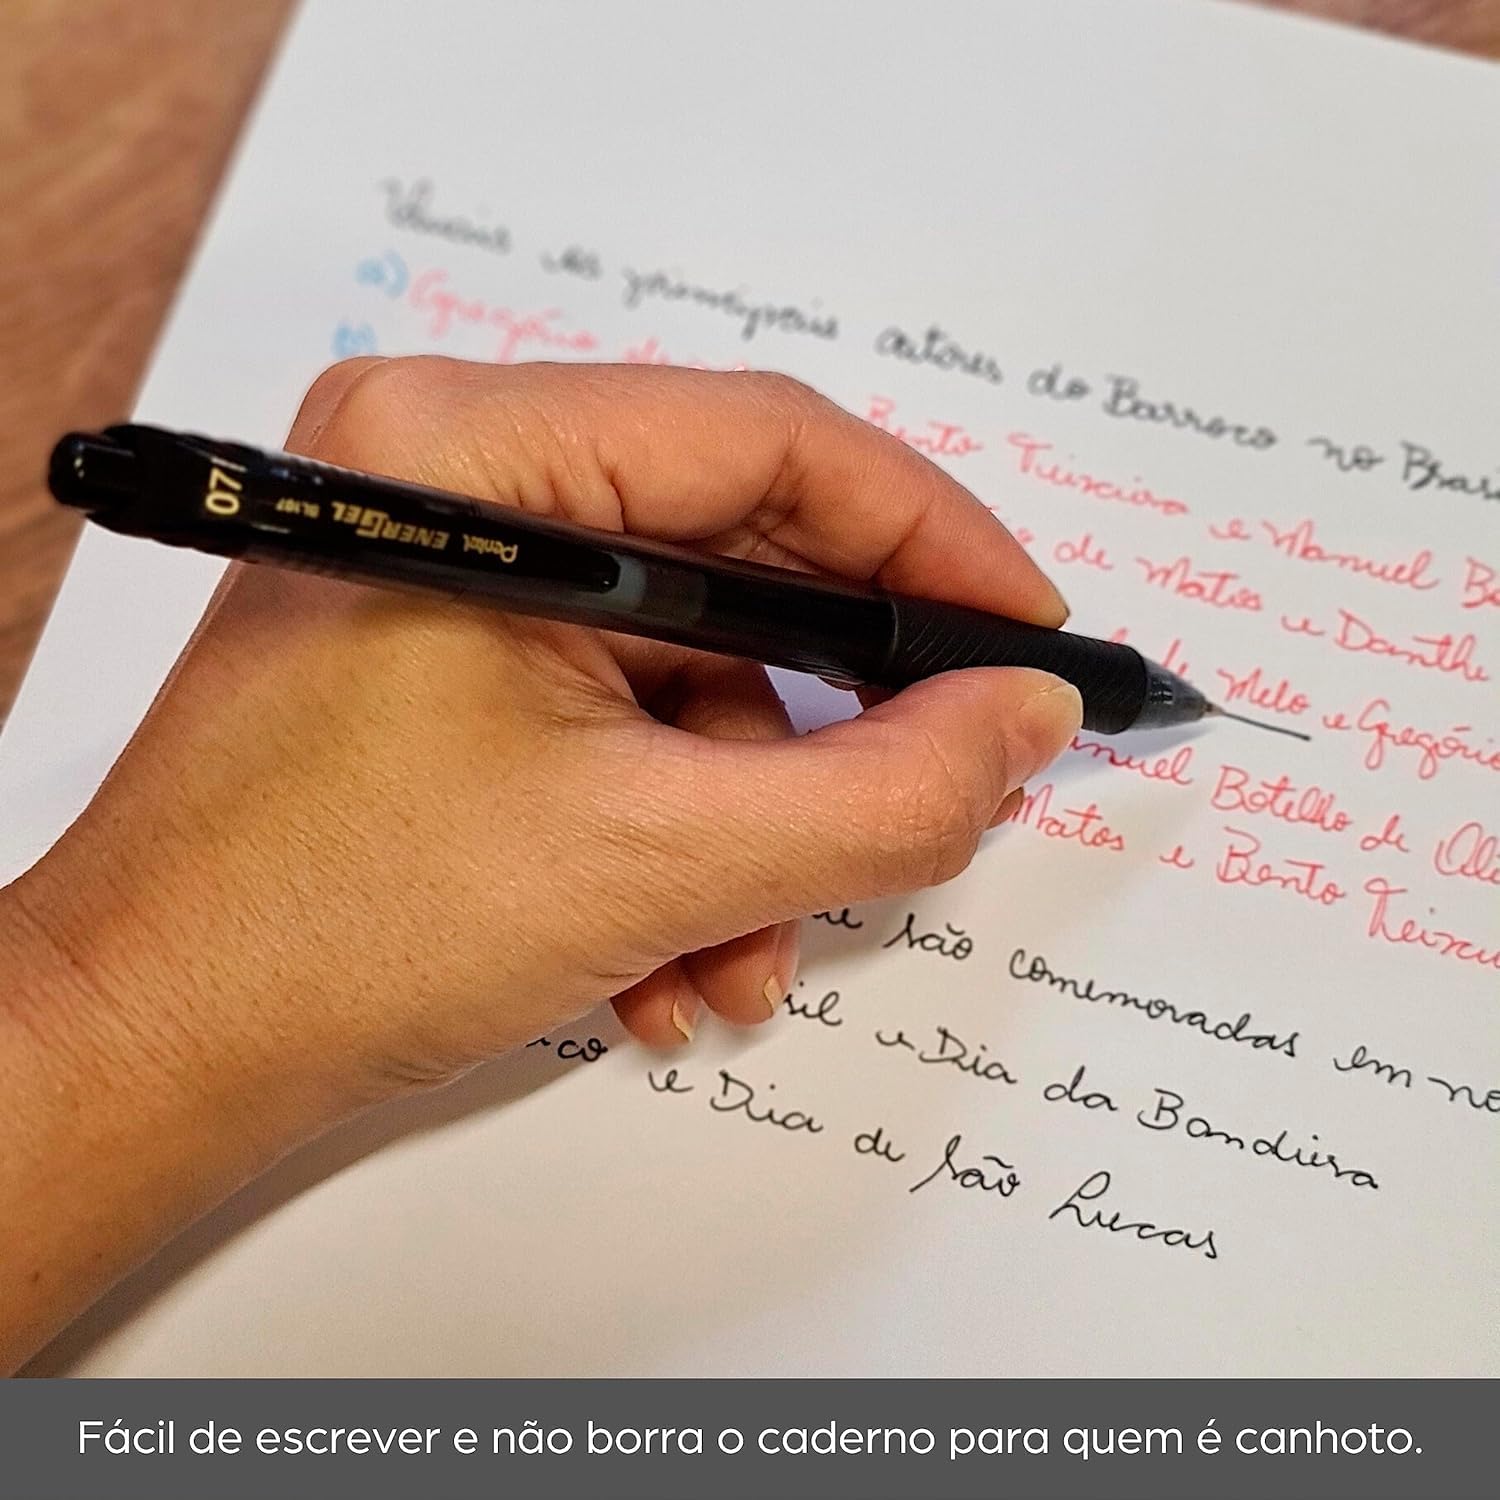 os principais autores do Barroco no Brasi
a) Gregório de
b) Bento Teixeira e Manuel Bo
de Matos e Danthe
de Melo e Gregório
anuel Botelho de Oli
Matos e Bento Teixei
são comemoradas em no
sil e Dia da Bandeira
co e Dia de São Lucas
07
Pentel ENERGEL BL107
Fácil de escrever e não borra o caderno para quem é canhoto.